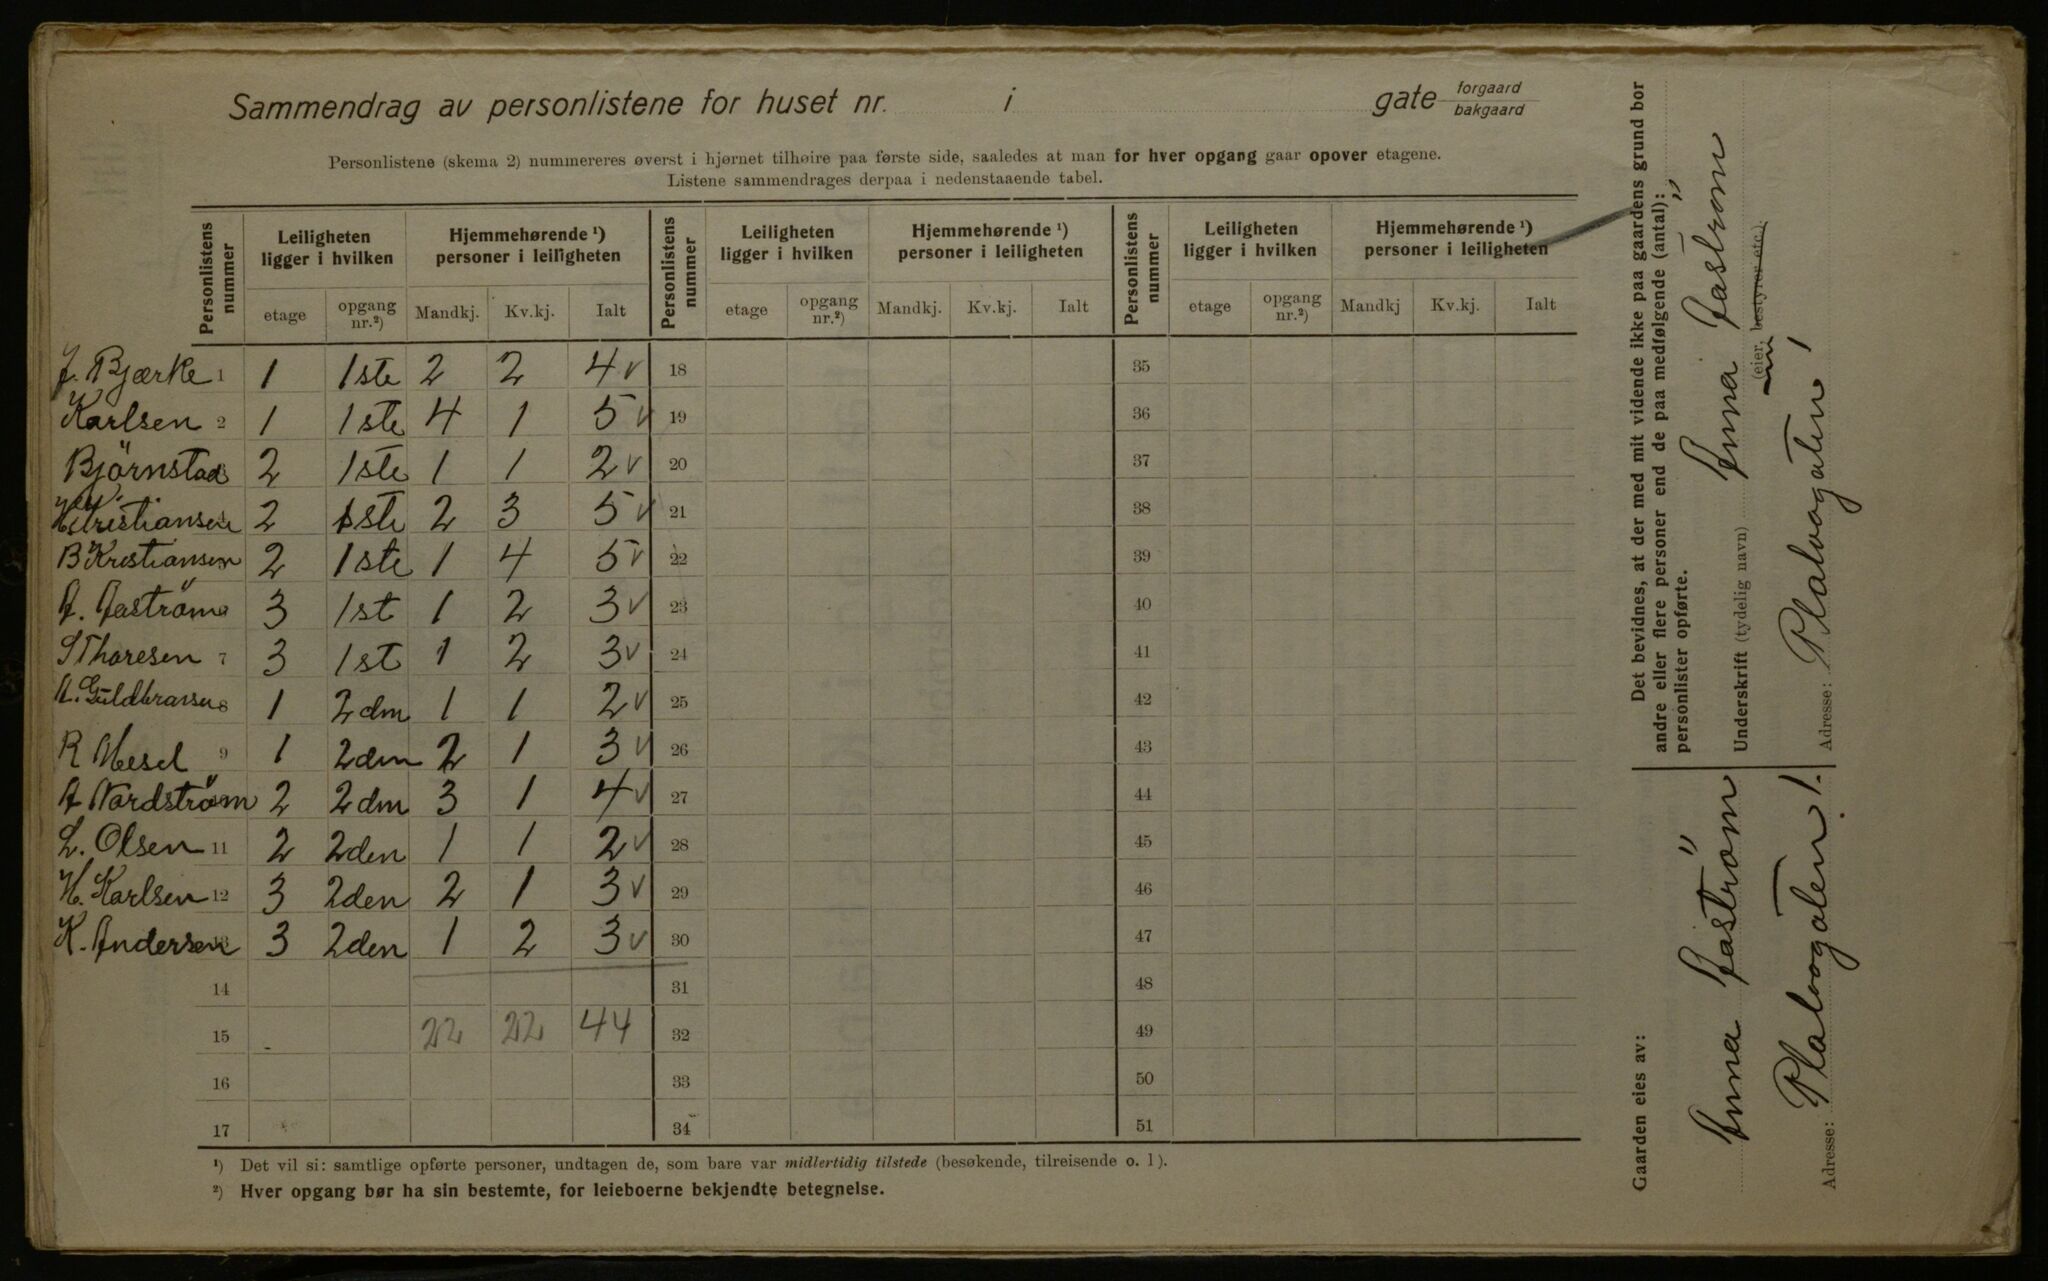 Sammendrag av personlistene for huset nr. i gate forgaard bakgaard
Personlistene (skema 2) nummereres øverst i hjørnet tilhøire paa første side, saaledes at man for hver opgang gaar opover etagene.
Listene sammendrages derpaa i nedenstaaende tabel.
Personlistens nummer Leiligheten ligger i hvilken Hjemmehørende ¹) personer i leiligheten Personlistens nummer Leiligheten ligger i hvilken Hjemmehørende ¹) personer i leiligheten Personlistens nummer Leiligheten ligger i hvilken Hjemmehørende ¹) personer i leiligheten
etage opgang nr.²) Mandkj. Kv.kj. Ialt etage opgang nr.²) Mandkj. Kv.kj. Ialt etage opgang nr.²) Mandkj Kv.kj. Ialt
J. Bjærke 1 1 1ste 2 2 4 v 18 35
Karlsen 2 1 1ste 4 1 5 v 19 36
Björnstad 2 1ste 1 1 2 v 20 37
Kristiansen 2 1ste 2 3 5 v 21 38
B Kristiansen 2 1ste 1 4 5 v 22 39
A. Aaström 3 1st 1 2 3 v 23 40
S Thoresen 7 3 1st 1 2 3 v 24 41
A. Guldbransen 8 1 2dm 1 1 2 v 25 42
R Mesel 9 1 2den 2 1 3 v 26 43
A Nordström 2 2dm 3 1 4 v 27 44
L. Olsen 11 2 2den 1 1 2 v 28 45
H. Karlsen 12 3 2den 2 1 3 v 29 46
K. Andersen 13 3 2den 1 2 3 v 30 47
14 31 48
15 22 22 44 32 49
16 33 50
17 34 51
¹) Det vil si: samtlige opførte personer, undtagen de, som bare var midlertidig tilstede (besøkende, tilreisende o. l).
²) Hver opgang bør ha sin bestemte, for leieboerne bekjendte betegnelse.
Gaarden eies av:
Anna Aaström
Adresse: Platougaten 1.
Det bevidnes, at der med mit vidende ikke paa gaardens grund bor
andre eller flere personer end de paa medfølgende (antal):
personlister opførte.
Underskrift (tydelig navn) Anna Aaström
(eier, bestyrer etc.)
Adresse: Platougaten 1